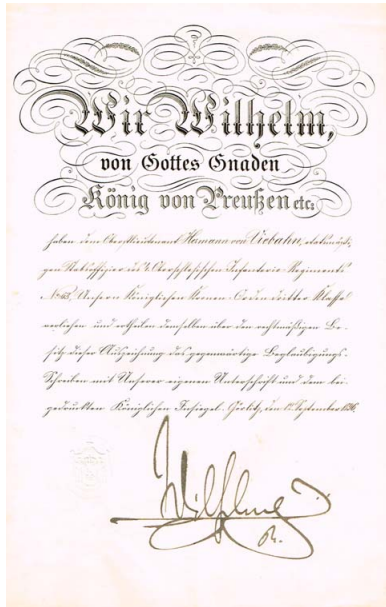 Wir Wilhelm,
von Gottes Gnaden
König von Preußen etc:
haben dem Oberstlieutenant Hermann von Viebahn, etatsmäßi-
gen Stabsoffizier des 4. Oberschlesischen Infanterie-Regiments
No 63, Unsern Königlichen Kronen-Orden dritter Klasse
verliehen und ertheilen demselben über den rechtmäßigen Be-
sitz dieser Auszeichnung das gegenwärtige Beglaubigungs-
Schreiben mit Unserer eigenen Unterschrift und dem bei-
gedruckten Königlichen Insiegel. Görlitz, den September
Wilhelm
R.